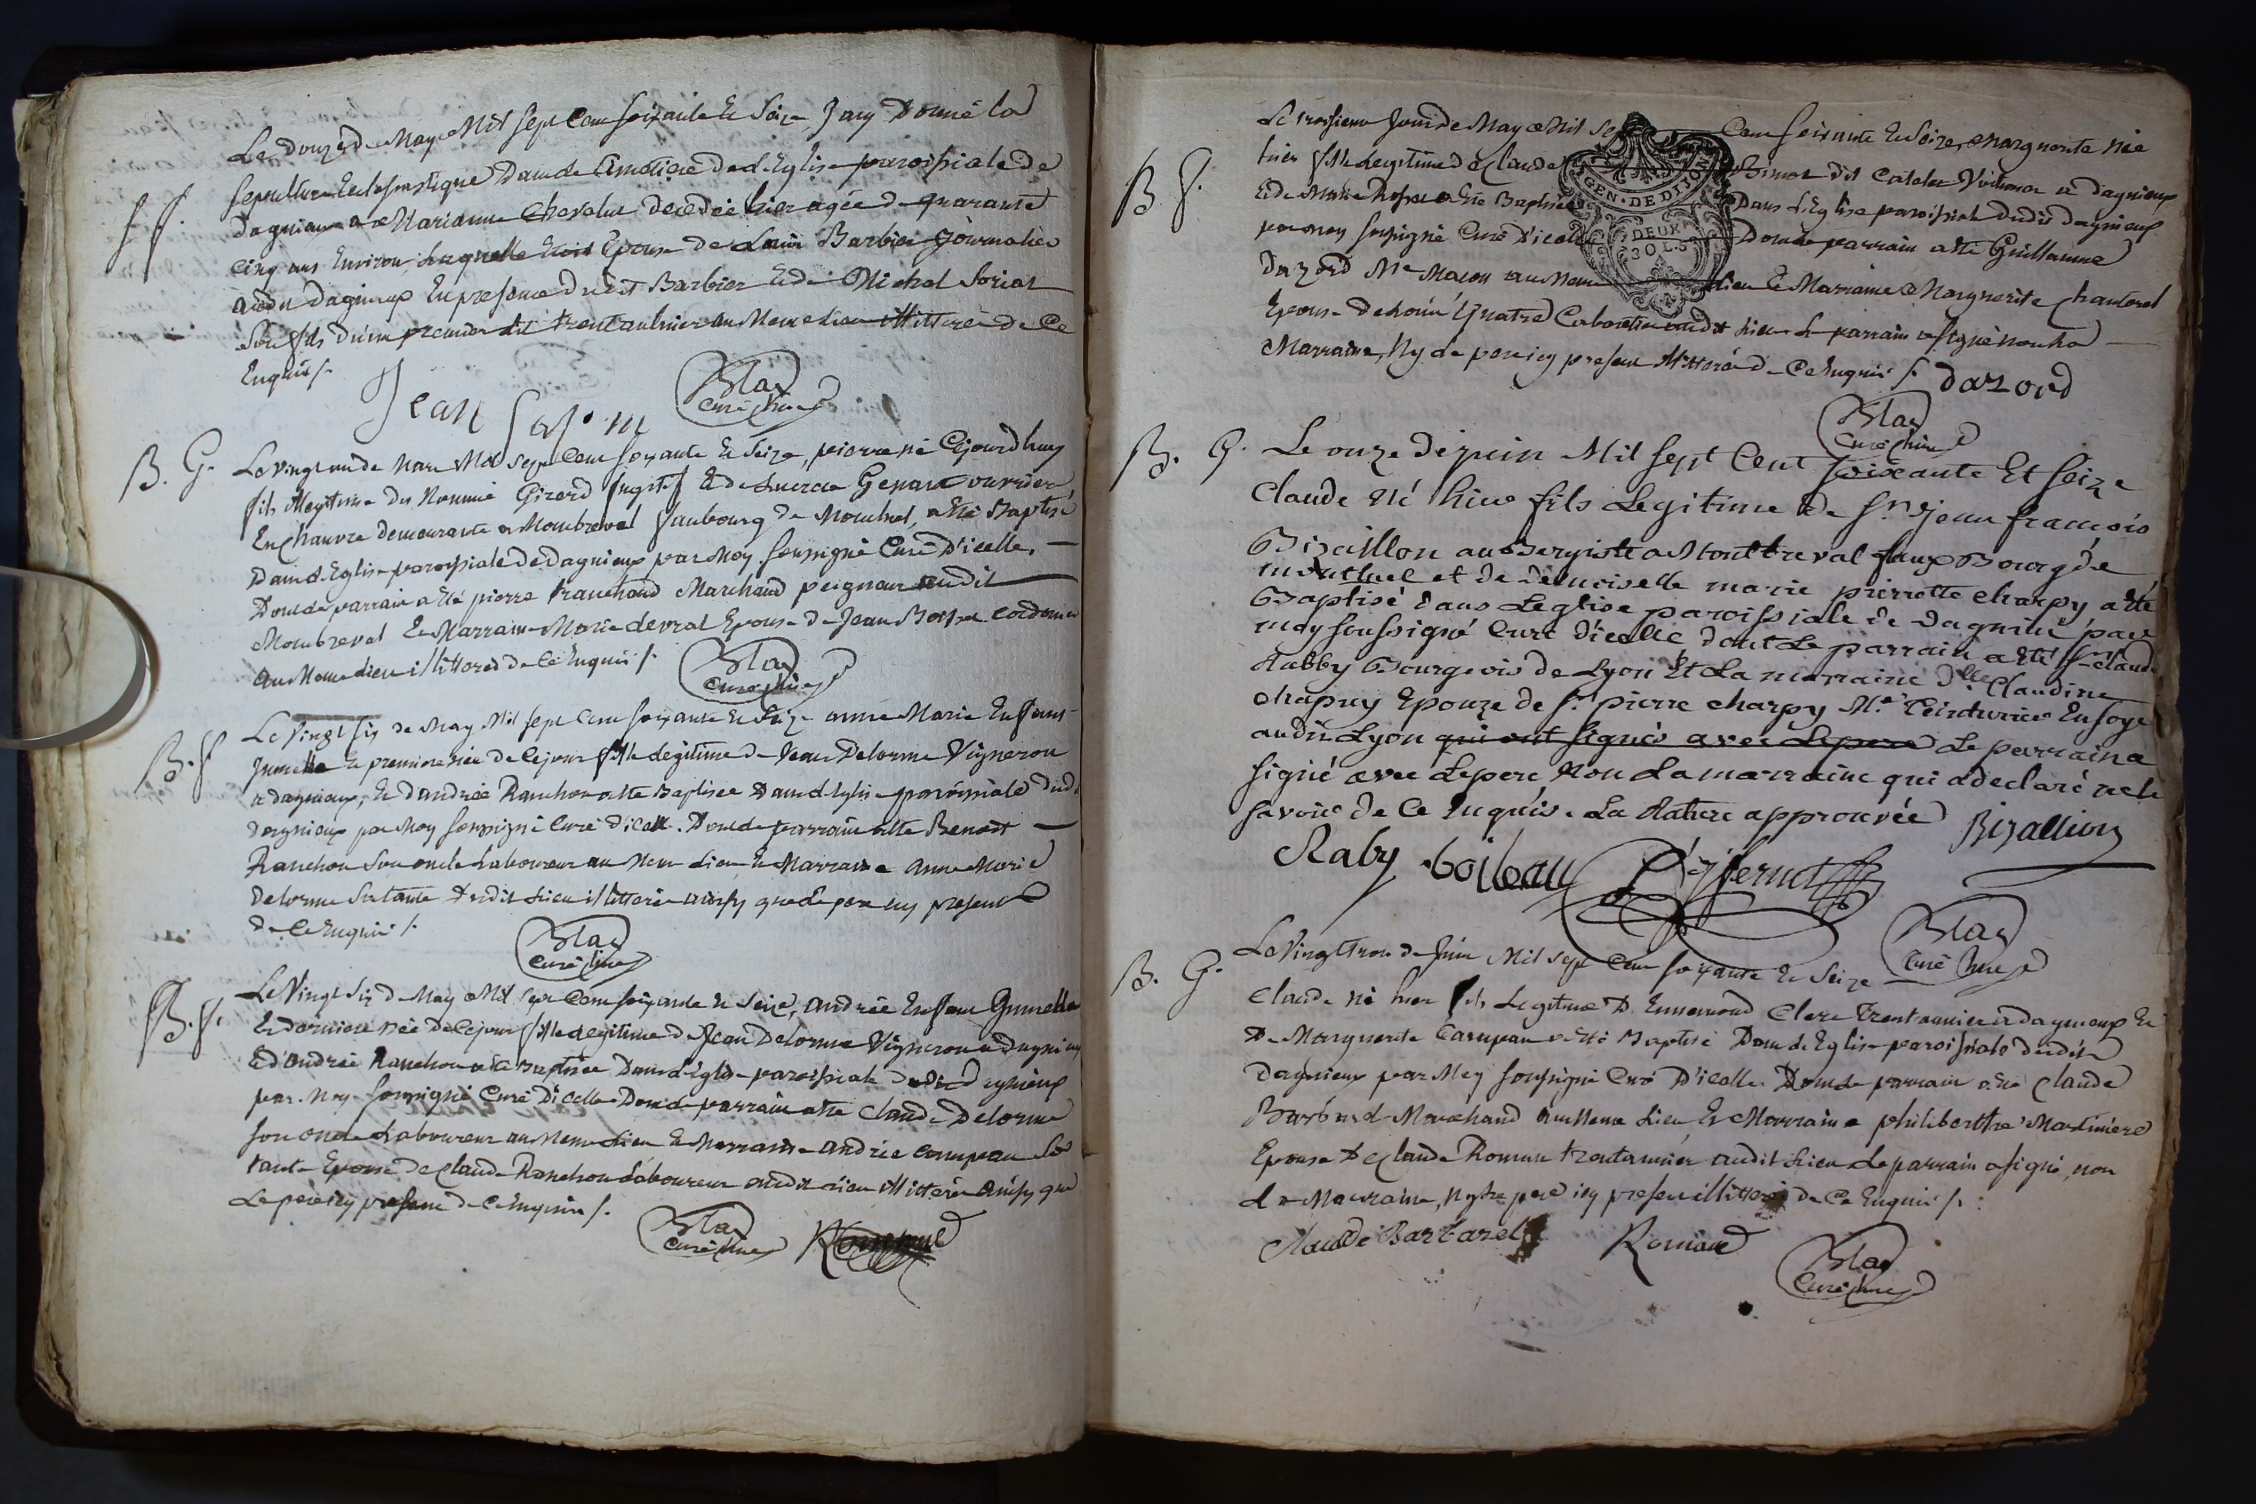 Le douze de May Mil sept Cent soixante Et Seize Jay Donné la
S f. sepulture Eclesiastique Dans le Cimetiere de l'Eglise paroissiale de
dagnieux a Marianne Chevalier decedée hier agée de quarante
cinq ans Environ Laquelle Etoit Epouse de Louis Barbier Journalier
audit dagnieux En presence dudit Barbier Et de Michel
son fils du un premier lit trentannier au Meme Lieu illitterés de Ce
Enquis /.
Jean
Blad
Curé
B. G. Le vingt un de May Mil sept Cent soixante Et Seize, pierre né Cejourd'huy
fils illegitime du Nommé Girerd Et de Lucrece Genan ouvriere
En Chanvre demeurante a Montbreval faubourg de Montluel, a été Baptisé
Dans l'Eglise paroissiale de Dagnieux par Moy soussigné Curé D'icelle. —
Dont le parrain a été pierre tranchand Marchand peigneur audit
Montbreval Et Marraine Marie devrat Epouse de Jean cordonnier
au Meme Lieu illitterés de Ce Enquis /.
Blad
Curé
B. f Le vingt six de May Mil sept Cent soixante Et Seize anne Marie Enfant
Jumelle Et premiere née de Cejour fille legitime de Jean Delorme Vigneron
a dagnieux, Et d'andrée Ranchon a été Baptisée Dans l'Eglise paroissiale dudit
dagnieux par Moy soussigné Curé d'icelle. Dont le parrain a été Benoit —
Ranchon Son oncle Laboureur au Meme Lieu Et Marraine anne Marie
Delorme Sa tante dudit Lieu illitterés ainsy que le pere icy present
de Ce Enquis /.
Blad
Curé
B. f. Le Vingt Six de May Mil Sept Cent soixante Et Seize, andrée Enfant Jumelle
Et derniere née de Cejour fille legitime de Jean Delorme Vigneron a Dagnieux
Et d'andrée Ranchon a été Baptisée Dans l'Eglise paroissiale dudit dagnieux
par Moy soussigné Curé D'icelle Dont le parrain a été Claude Delorme
son oncle Laboureur au Meme Lieu Et Marraine andrée Campeau Sa
tante Epouse de Claude Ranchon laboureur audit Lieu illitterés ainsy que
Le pere icy present de Ce Enquis /.
Blad
Curé
Le troisieme Juin de May Mil Sept Cent soixante Et Seize, marguerite née
B f. hier fille legitime de Claude Vigneron a dagnieux
Et de Marie a été Baptisée Dans l'Eglise paroissiale dudit dagnieux
par moy soussigné Curé D'icelle Dont le parrain a été Guillaume
Dazord Me Macon au Meme Lieu Et Marraine Marguerite Chanterel
Epouse de Cabaretier audit Lieu Le parrain a signé non la
Marraine, Ny le pere icy present illitteré de Ce Enquis /. dazord
GEN. DE DIJON
DEUX
SOLS
Blad
Curé
B. G. Le onze de juin Mil sept Cent soixante Et seize
Claude Né hier fils Legitime de Sr. Jean francois
Bizaillon auBergiste a Montbreval faux Bourg de
montluel et de demoiselle marie pierrette charpy a été
Baptisé dans Leglise paroissiale de dagnieu par
moy soussigné Curé d'icelle dont Le parrain a été Sr Claude
Rabby Bourgeois de Lyon Et La marraine Dlle Claudine
chapuy Epouze de Sr. pierre charpy Me. teinturier En soye
audit Lyon qui ont signés avec Le pere Le parrain a
signé avec Le pere Non La marraine qui a declaré ne le
savoir de Ce Enquis. La Rature approuvée
Bizallion
Raby boileau
Blad
Curé
B. G. Le Vingt trois de Juin Mil sept Cent soixante Et Seize —
Claude né hier fils Legitime D'Ennemond Clerc Trentannier a dagnieux Et
De Marguerite Campeau a été Baptisé Dans l'Eglise paroissiale dudit
Dagnieux par Moy soussigné Curé D'icelle Dont le parrain a été Claude
Barbaret Marchand au Meme Lieu Et Marraine philiberthe Martiniere
Epouse De Claude Romann trentannier audit Lieu Le parrain a signé, non
La Marraine, Ny le pere icy present illitterés de Ce Enquis /:
Claude Barbaret
Romand
Blad
Curé